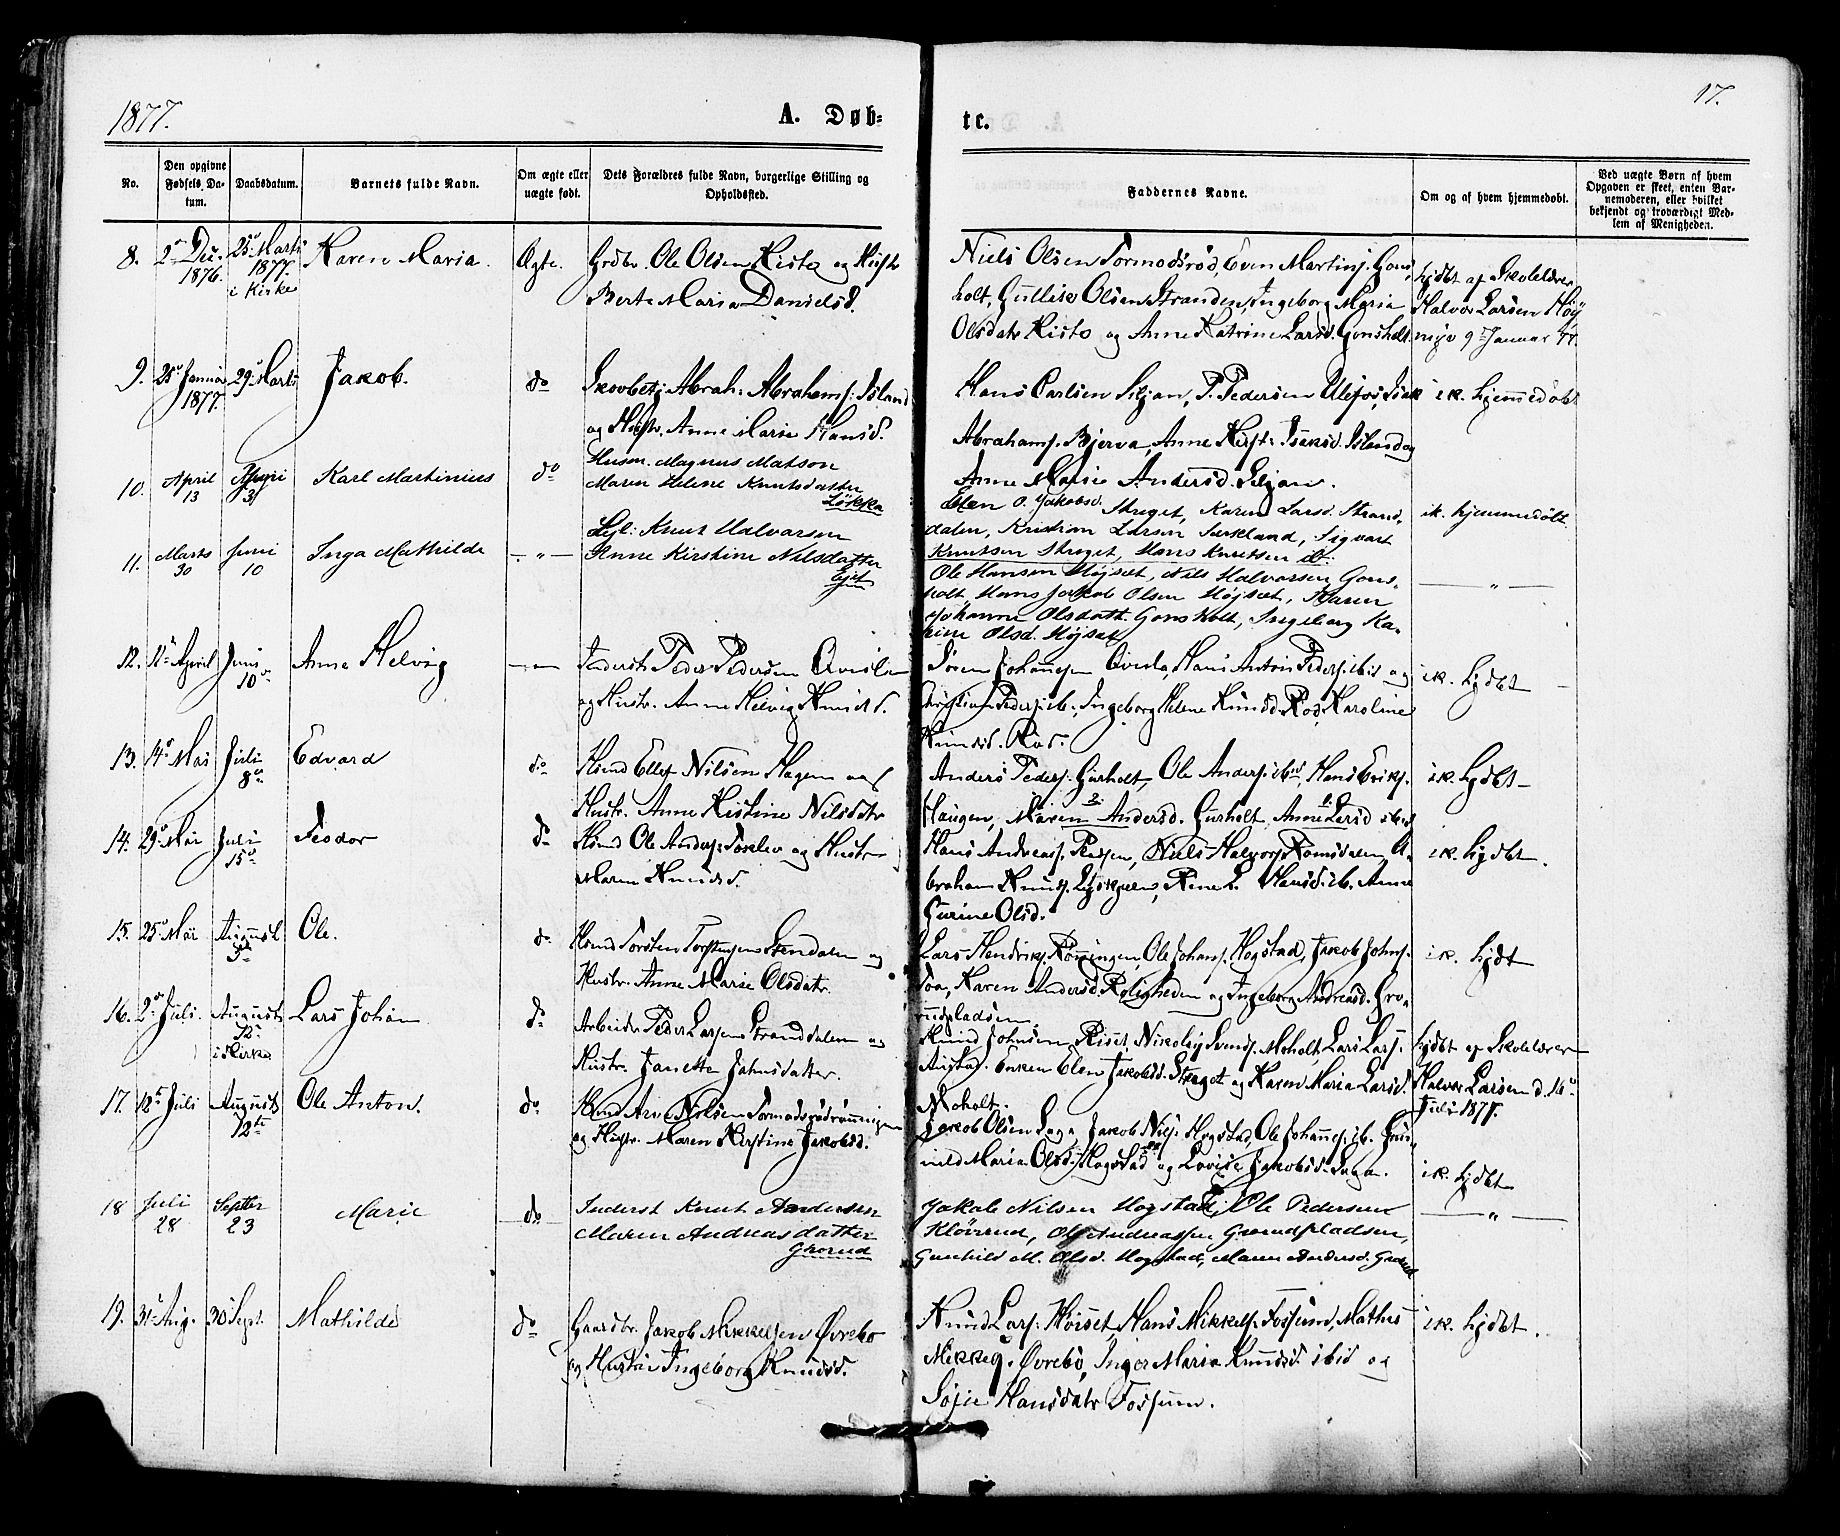 1877.
A. Døb-
te.
17.
No.
Den opgivne Fødsels-Datum.
Daabsdatum.
Barnets fulde Navn.
Om ægte eller uægte født.
Dets Forældres fulde Navn, borgerlige Stilling og Opholdssted.
Faddernes Navne.
Om og af hvem hjemmedøbt.
Ved uægte Børn af hvem Opgaven er skeet, enten Barnemoderen, eller hvilket bekjendt og troværdigt Medlem af Menigheden.
8. 2 Dec. 1876. 25 Marts 1877. i Kirke
Karen Maria. Ægte.
Grdbr. Ole Olsen Kisto og Hustr
Berte Maria Danielsd.
Niels Olsen Tormodsrød, Even Martins. Gons-
holt, Gullik Olsen Stranden, Ingeborg Maria
Olsdatr Kisto og Anne Katrine Larsd. Gonsholt
hjdbt af Skolelærer
Halvor Larsen Høy
9 Januar 77.
9. 25 Januar 1877. 29 Marts
Jakob. do
Abrah. Abrahams. Island
og Hustr. Anne Marie Hansd.
Hans Carlsen Siljan, P. Pedersen Ulefos, Isak
Abrahams. Bjerva, Anne Kirst. Isaksd. Island og
Anne Marie Andersd. Siljan.
ik. hjemmedøbt
10. April 13 Juni 3
Karl Martinius do
Husm. Magnus Matson
Maren Helene Knutsdatter
Løkka
Elen O. Jakobsd. Skreget, Karen Larsd. Strand-
dalen, Kristian Larsen Sørkland, Sigvart
Knutsen Skreget, Hans Knutsen ib.
ik. hjemmedøbt
11. Marts 30 Juni 10
Inga Mathilde — " —
Sel: Knut Halvorsen
Anne Kirstine Nilsdatter
Ejet
Ole Hansen Højset, Nils Halvorsen Gons-
holt, Hans Jakob Olsen Højset, Karen
Johanne Olsdatt. Gonsholt, Ingeborg Ka-
rine Olsd. Højset
— " —
12. 11 April Juni 10
Anne Helvig — " —
Inderst Peder Pedersen
og Hustr. Anne Helvig Knudsd.
Søren Johannesen Hans Anton Peders. ibid og
Christian Peders. ib., Ingeborg Helene Knudsd. Rød, Karoline
Knudsd. Rød.
ik. hjdbt
13. 14 Mai Juli 8
Edvard do
Hsmd Ellef Nilsen Hagen og
Hustr. Anne Kistine Nilsdtr
Anders Peders. Gurholt, Ole Anders. ibid, Hans Eriks.
Haugen, Maren Andersd. Gurholt, Anne Larsd ibid
ik. hjdbt
14. 29 Mai Juli 15
Teodor do
Hsmd Ole Anders. og Hustr
Maren Knudsd.
Hans Andreas. Niels Halvors. Romsdalen, A-
braham Knuds. Hansd. ib. Anne
Gurine Olsd.
ik. hjdbt.
15. 25 Mai August 5
Ole. do
Hsmd Torsten Torstensen Stendalen og
Hustr. Anne Marie Olsdatr.
Lars Hendriks. Rønningen, Ole Johans. Hogstad, Jakob Johns.
Toa, Karen Andersd. Roligheden og Ingeborg Andreasd. Gro-
rudpladsen
ik. hjdt
16. 2 Juli. August 12 i Kirke
Lars Johan do
Arbeidr Peder Larsen Stranddalen og
Hustr. Janette Johnsdatter.
Knud Johnsen Riset, Nikolaj Svends. Moholt, Lars Lars.
Enken Elen Jakobsd. Skreget og Karen Maria Larsd.
Moholt.
hjdbt af Skolelærer
Halvor Larsen d. 16
Juli 1877.
17. 12 Juli August 12te
Ole Anton. do
Hsmd Arve Nilsen Tormodsrødrønningen
og Hustr. Maren Kirstine Jakobsd.
Jakob Olsen Saga Jakob Nils. Hogstad, Ole Johannes. ib. Gun-
hild Maria Olsd. Hogstad og Lovise Jakobsd. Saga.
ik. hjdbt
18 Juli 28 Septbr 23
Marie do
Inderst Knut Andersen
Maren Andreasdatter
Grorud
Jakob Nilsen Hogstad, Ole Pedersen
Kløvrud, Ole Andreassen Grorudpladsen,
Gunhild M. Olsd. Hogstad, Maren Andersd. Grorud
— " —
19. 31 Aug. 30 Sept.
Mathilde do
Gaardbr. Jakob Mikkelsen Øvrebo
og Hustr Ingeborg Knudsd.
Knud Lars. Høiset, Hans Mikkels. Fossum, Mathis
Mikkels. Øvrebø, Inger Maria Knudsd. ibid og
Hansdatr Fossum.
ik. hjdbt.